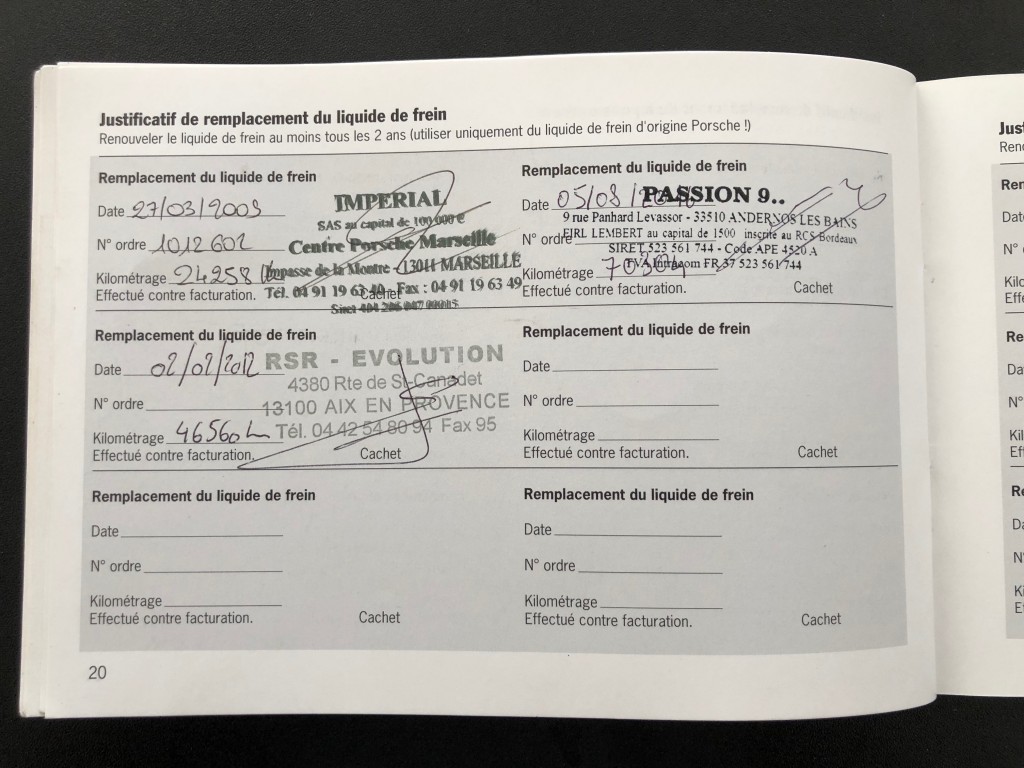 Justificatif de remplacement du liquide de frein
Renouveler le liquide de frein au moins tous les 2 ans (utiliser uniquement du liquide de frein d'origine Porsche !)
Remplacement du liquide de frein
Date 27/03/2009
N° ordre 1012602
Kilométrage 24258
Effectué contre facturation.
Cachet
IMPERIAL
SAS au capital de 100 000 €
Centre Porsche Marseille
Impasse de la Montre - 13011 MARSEILLE
Tél. 04 91 19 63 40 - Fax : 04 91 19 63 49
Siret
Remplacement du liquide de frein
Date 05/08/
N° ordre
Kilométrage
Effectué contre facturation.
Cachet
PASSION 9..
9 rue Panhard Levassor - 33510 ANDERNOS LES BAINS
EIRL LEMBERT au capital de 1500 inscrite au RCS Bordeaux
SIRET 523 561 744 - Code APE 4520 A
TVA Intracom FR 37 523 561 744
Remplacement du liquide de frein
Date 02/02/2012
N° ordre
Kilométrage 46560
Effectué contre facturation.
Cachet
RSR - EVOLUTION
4380 Rte de St-Canadet
13100 AIX EN PROVENCE
Tél. 04 42 54 80 94 Fax 95
Remplacement du liquide de frein
Date
N° ordre
Kilométrage
Effectué contre facturation.
Cachet
Remplacement du liquide de frein
Date
N° ordre
Kilométrage
Effectué contre facturation.
Cachet
Remplacement du liquide de frein
Date
N° ordre
Kilométrage
Effectué contre facturation.
Cachet
20